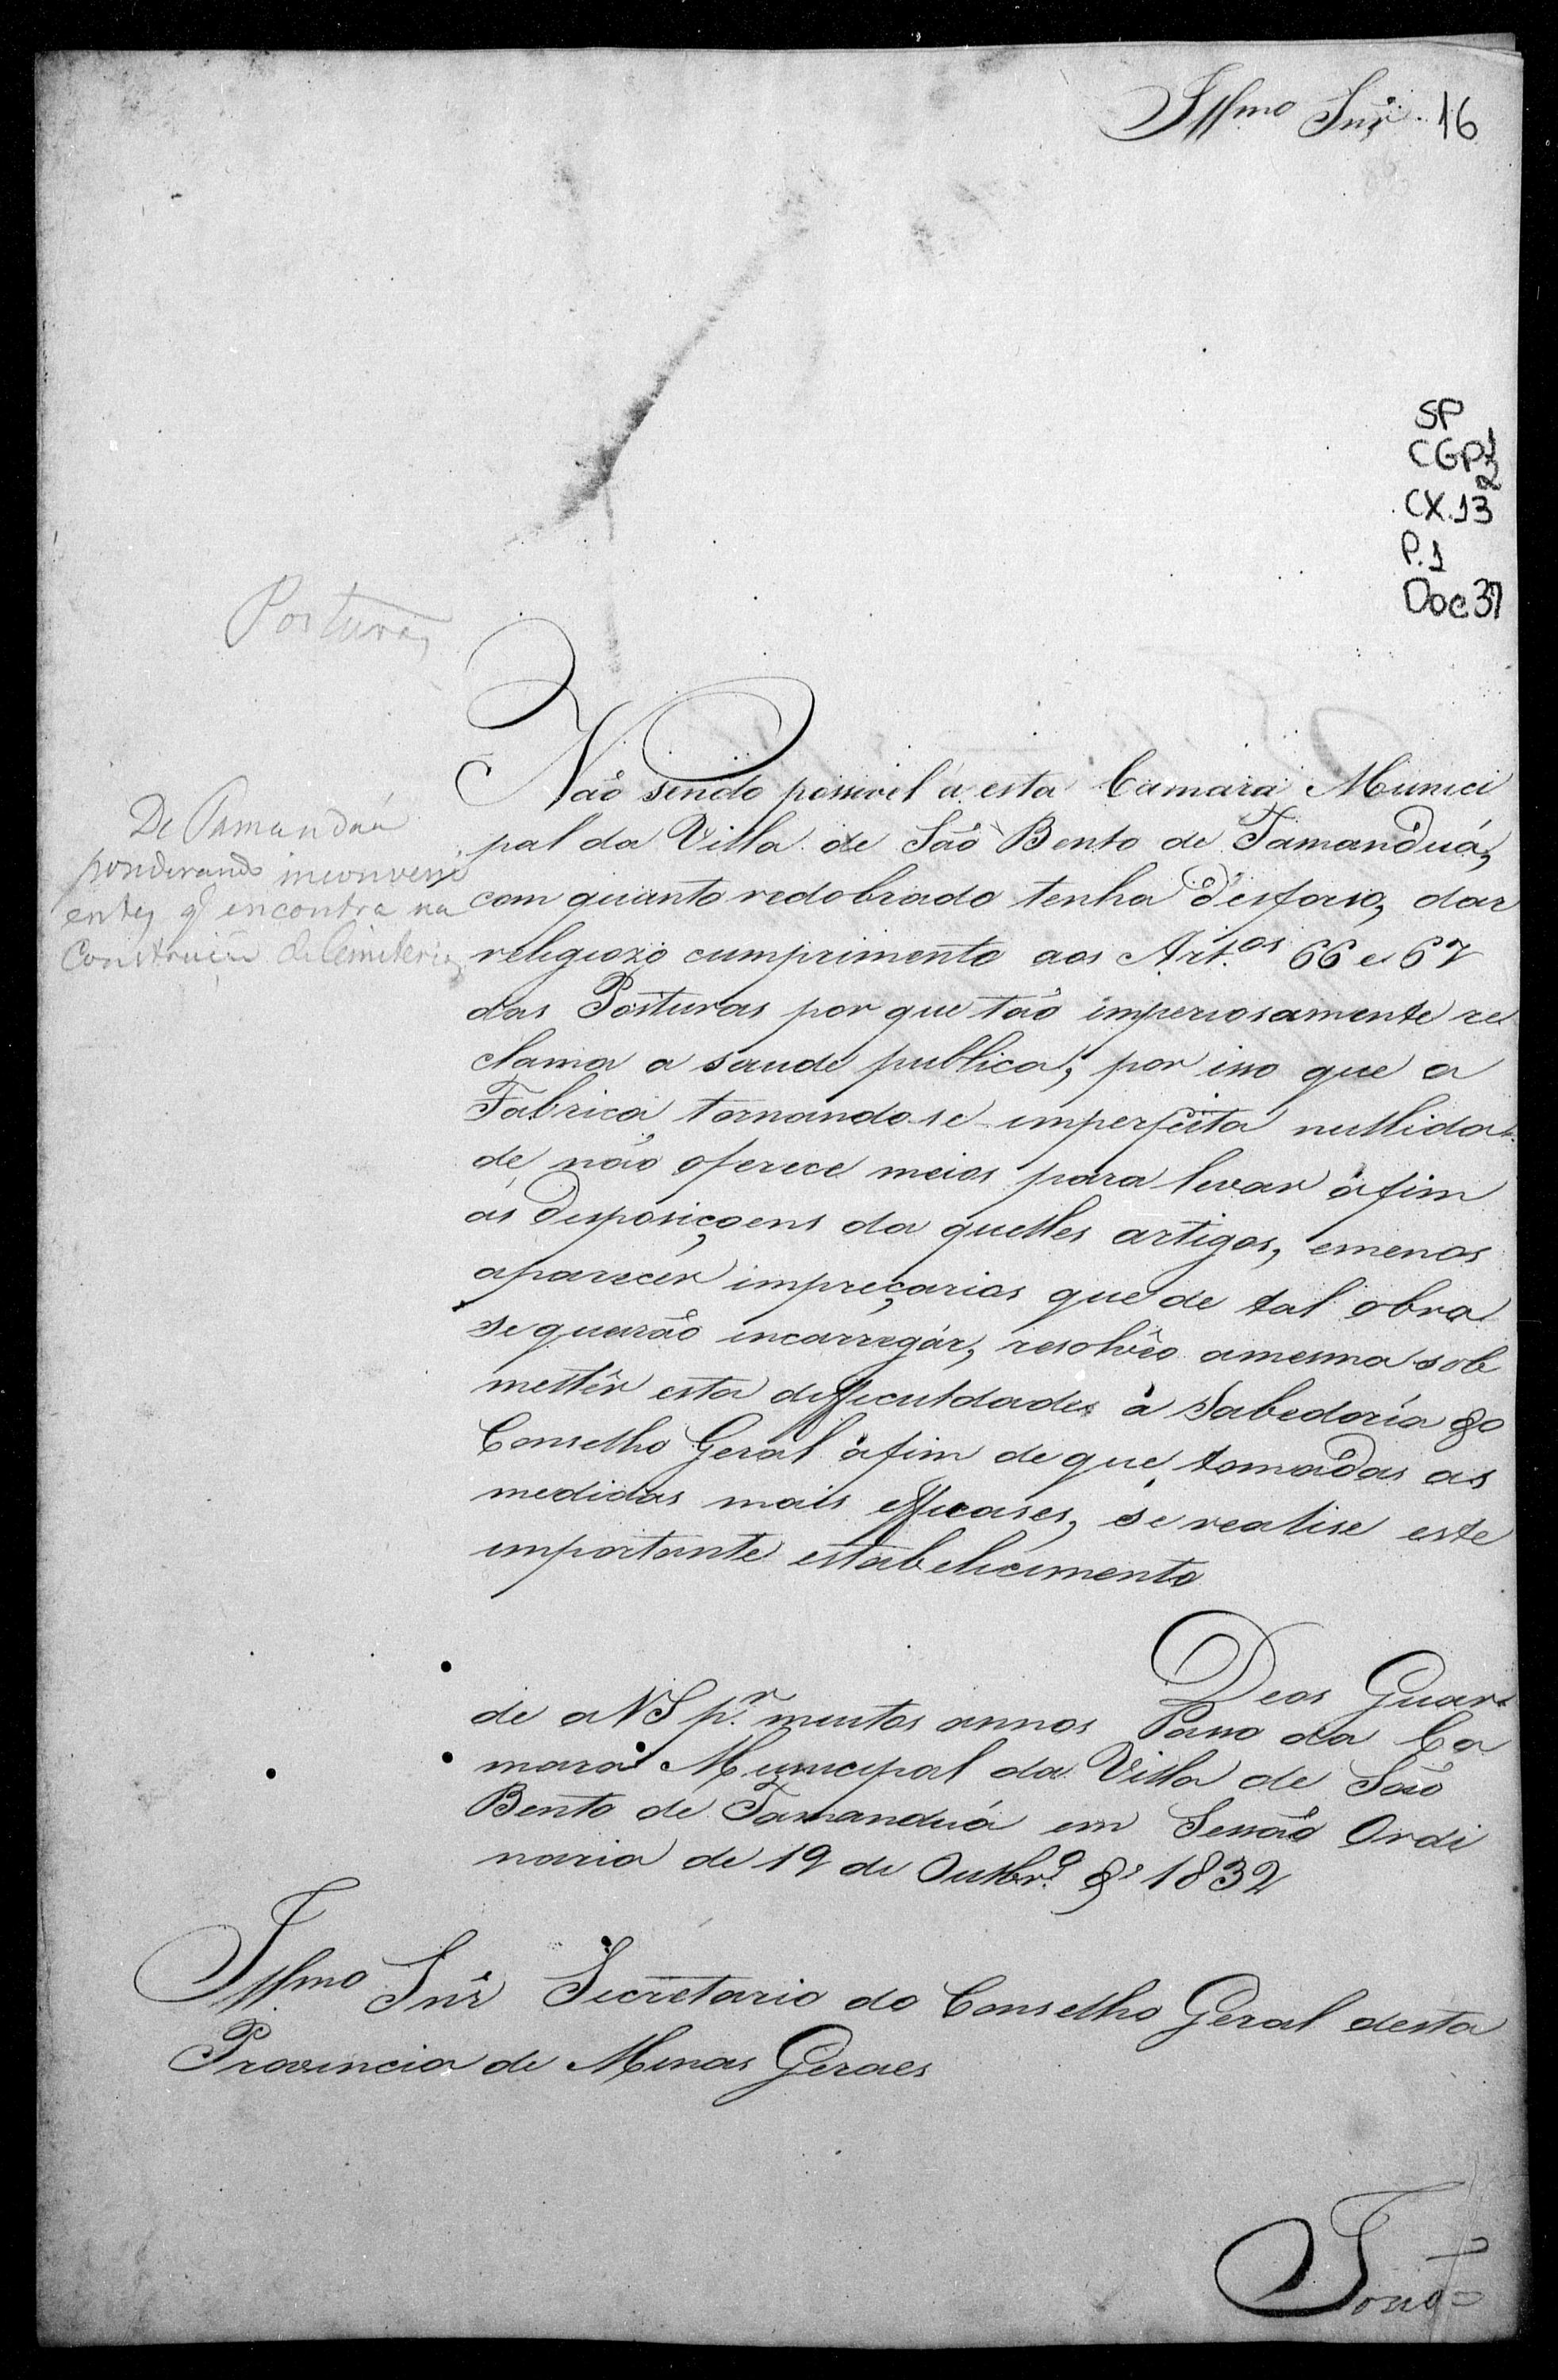 Illmo Snr. 16
SP
CGP1
2
CX.13
P.1
Doc 37
Posturas
De Tamanduá
ponderando inconveni
entes q encontra na
Construcção de Cemiterios
Não sendo possivel á esta Camara Munici
pal da Villa de São Bento de Tamanduá,
com quanto redobrado tenha d'esforso, dar
religiozo cumprimento aos Art.os 66 e 67
das Posturas por que tão imperiosamente re
clama a saude publica; por isso que a
Fabrica tornando-se imperfeita nullida-
de não oferece meios para levar áfim
as desposiçoens da quelles artigos, emenos
aparecer impreçarios que de tal obra
se queirão incarregár, resolvêo amesma sob
mettêr esta deficuldades á Sabedoria do
Conselho Geral áfim de que tomadas as
medidas mais efficases, se realise este
importante estabelicimento
Deos Guar-
de a VS p.r muitos annos Passo da Ca
mara Municipal da Villa de São
Bento de Tamanduá em Sessão Ordi
naria de 19 de Outbr.o de 1832
Illmo Snr Secretario do Conselho Geral desta
Provincia de Minas Geraes